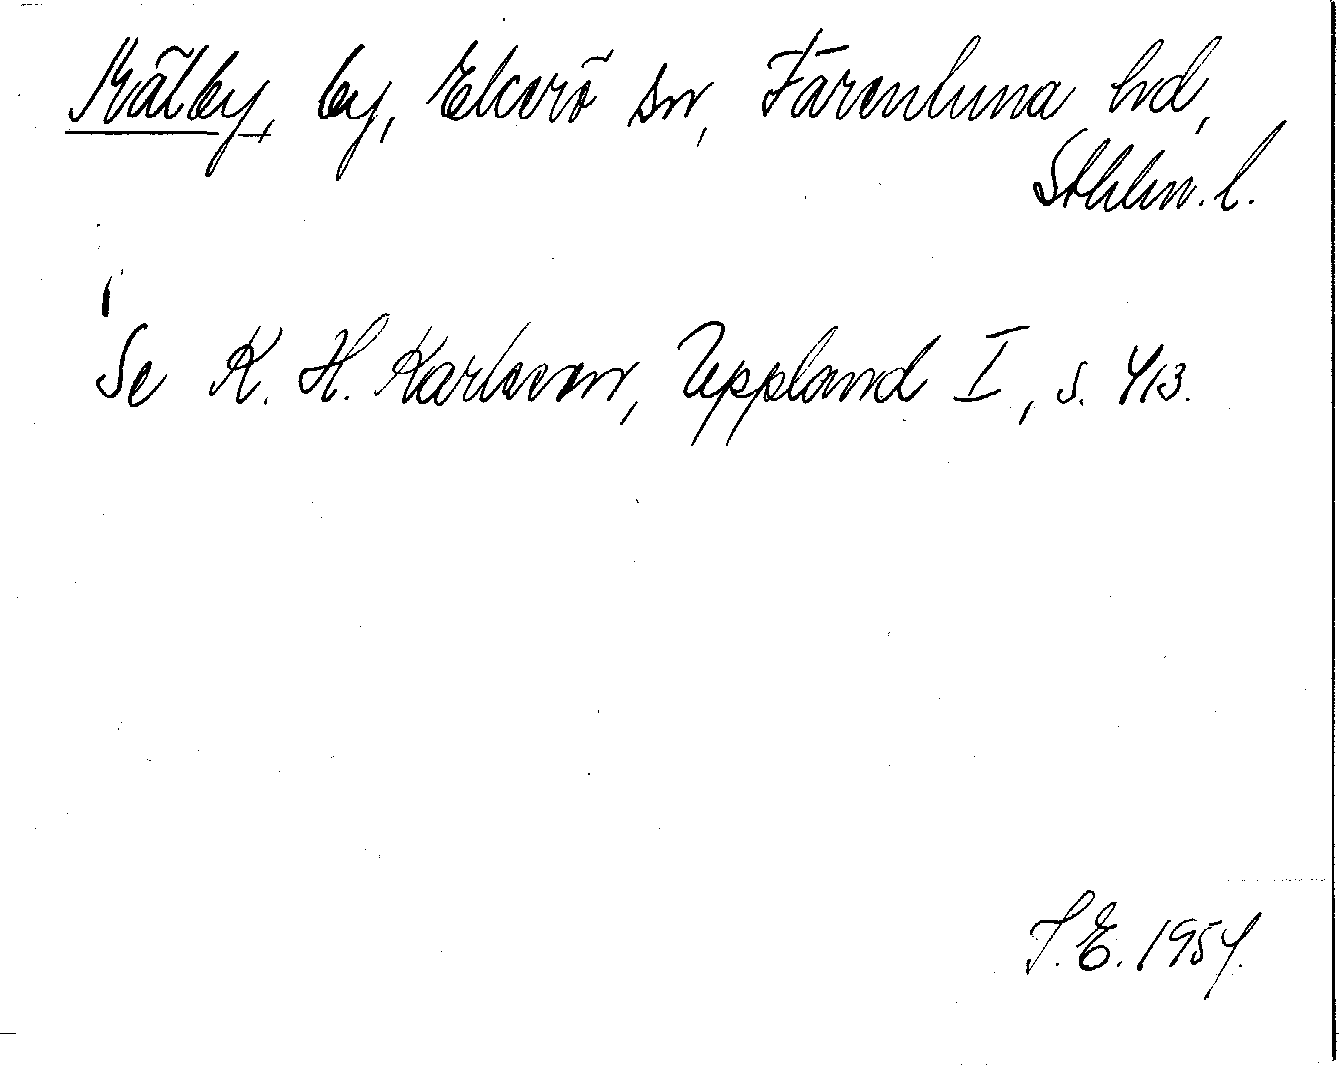 Kälby, by, Ekerö sn, Färentuna hd,
Sthlm. l.
Se K. H. Karlsson, Uppland I, s. 413.
I. E. 1954.